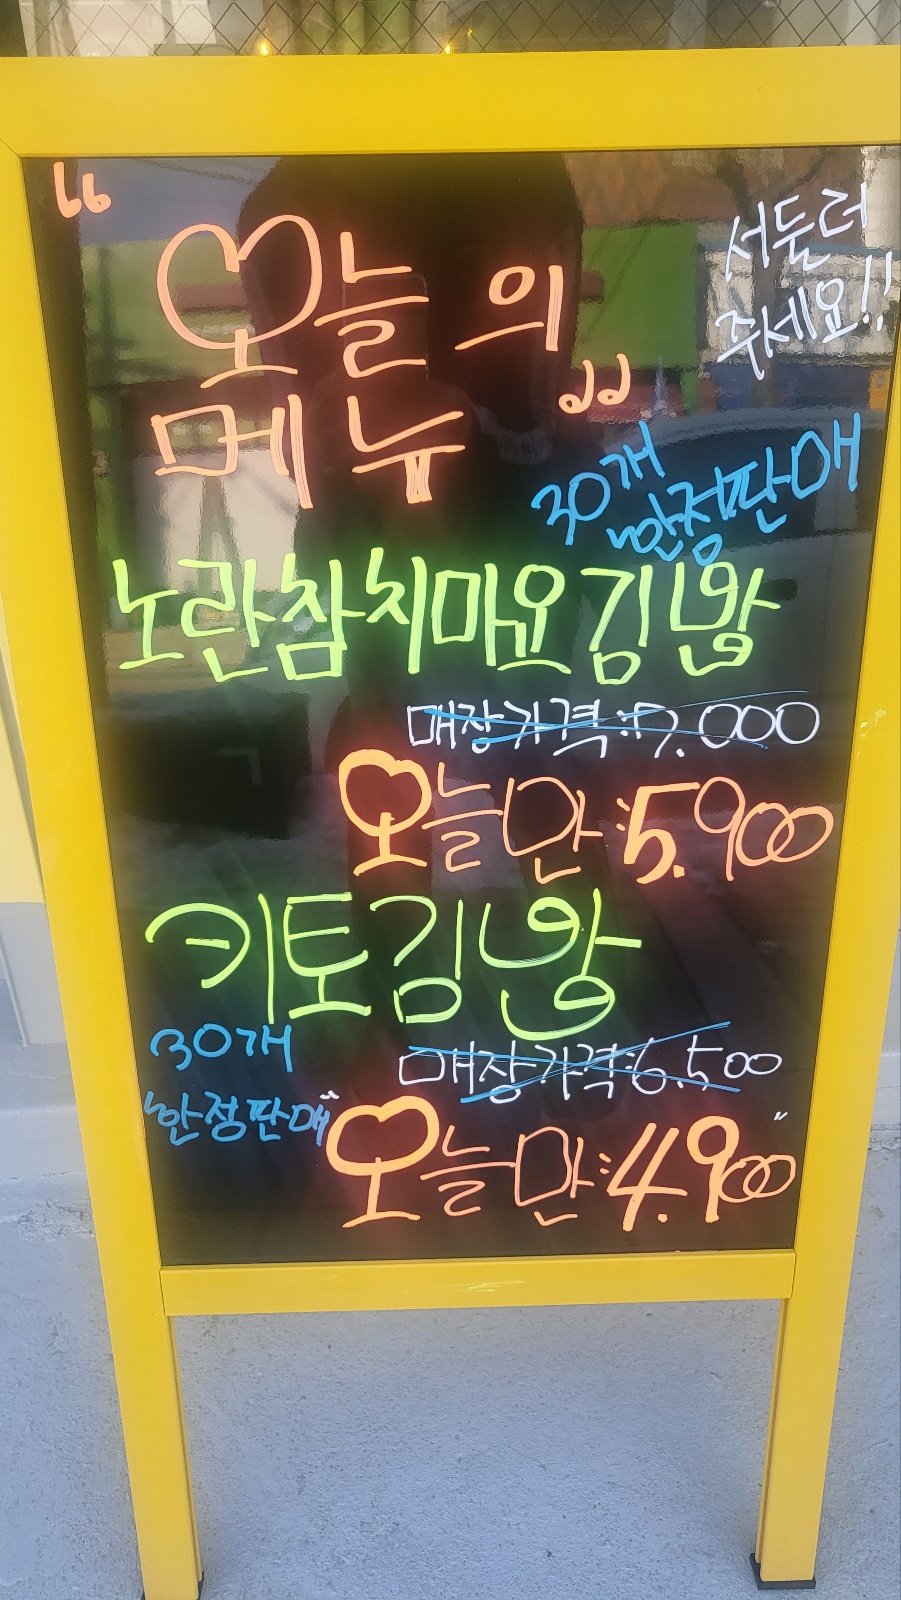 "오늘의
메뉴"
서둘러
주세요!!
30개
한정판매
노란참치마요김밥
매장가격:7.000
오늘만:5.900
키토김밥
30개
한정판매
매장가격:6.500
오늘만:4.900